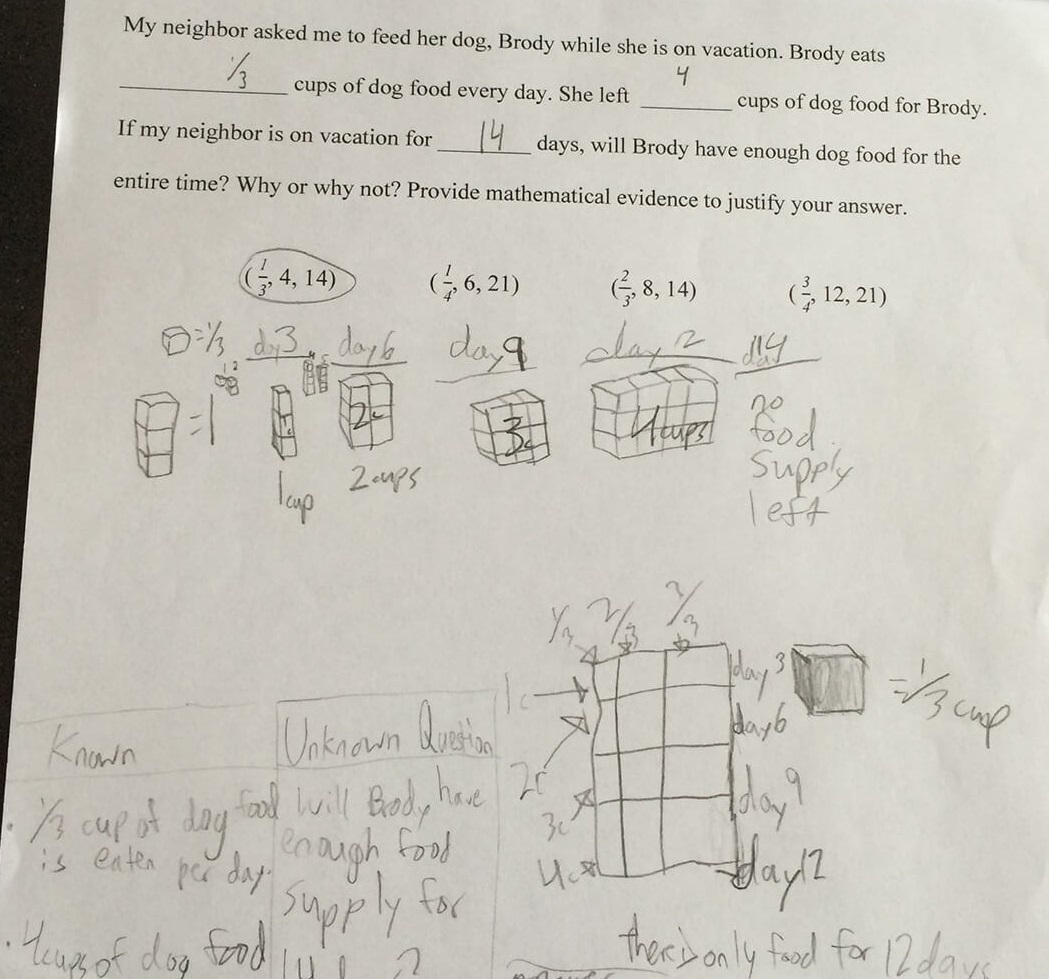 My neighbor asked me to feed her dog, Brody while she is on vacation. Brody eats
1/3 cups of dog food every day. She left 4 cups of dog food for Brody.
If my neighbor is on vacation for 14 days, will Brody have enough dog food for the
entire time? Why or why not? Provide mathematical evidence to justify your answer.
(1/3, 4, 14) (1/4, 6, 21) (2/3, 8, 14) (3/4, 12, 21)
=1/3 day3 day6 day9 day 2 day14
1 2
4 5
=1 2c 3c 4cups
1cup 2cups
no
food
supply
left
1/3 2/3 3/3
1c day3 =1/3 cup
2c day6
3c day9
4c day12
Known
• 1/3 cup of dog food
is eaten per day.
• 4cups of dog food
Unknown Question
Will Brody have
enough food
supply for
14
?
there is only food for 12 days